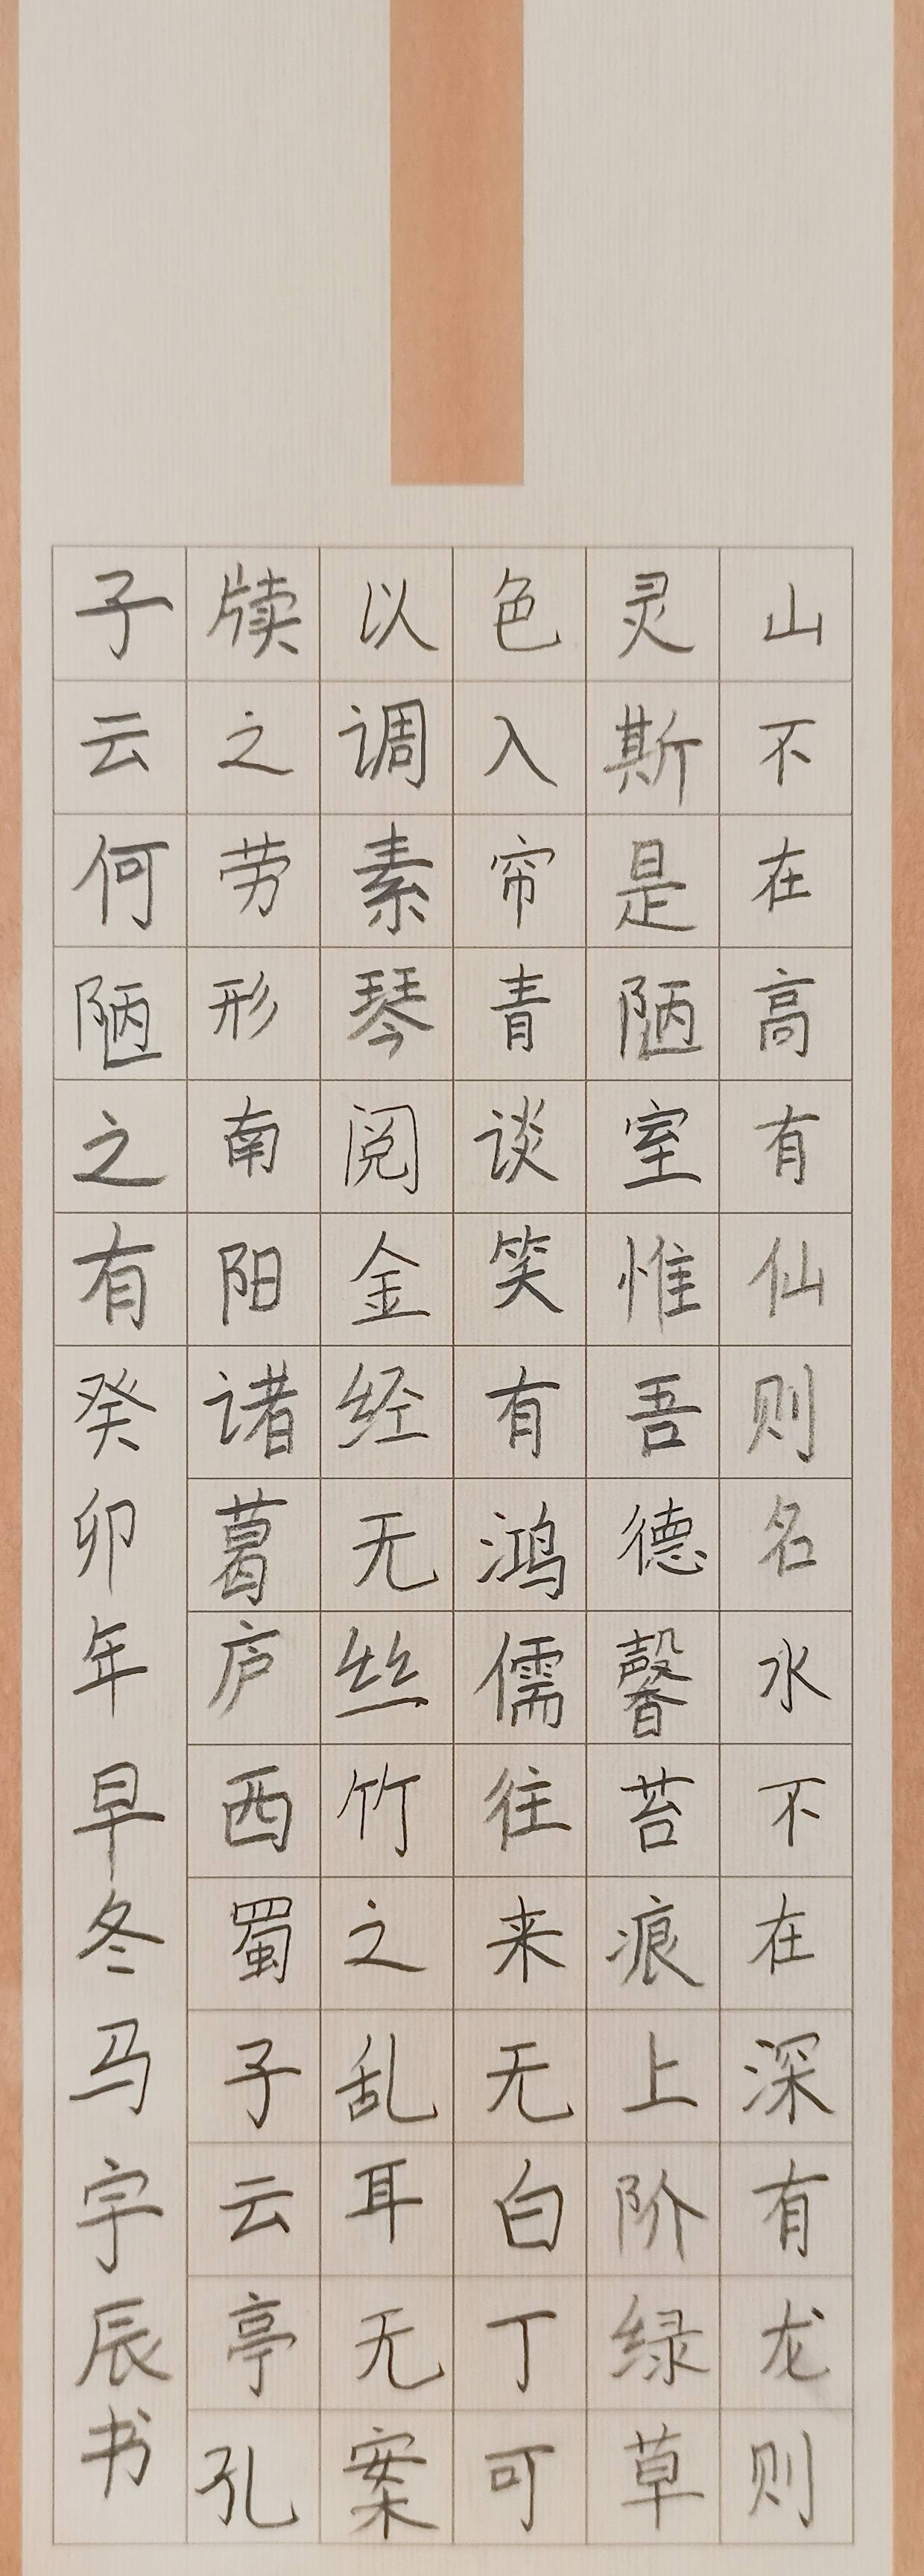 山不在高有仙则名水不在深有龙则
灵斯是陋室惟吾德馨苔痕上阶绿草
色入帘青谈笑有鸿儒往来无白丁可
以调素琴阅金经无丝竹之乱耳无案
牍之劳形南阳诸葛庐西蜀子云亭孔
子云何陋之有癸卯年早冬马宇辰书